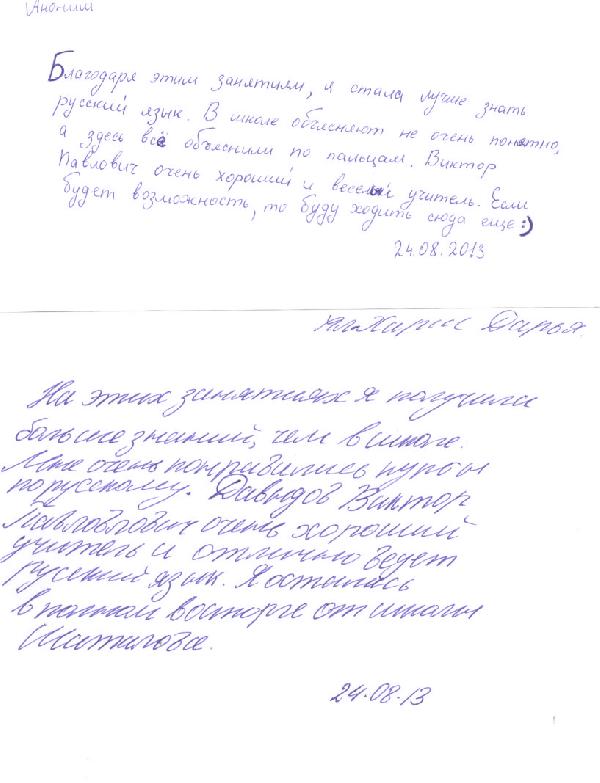 Аноним
Благодаря этим занятиям, я стала лучше знать
русский язык. В школе объясняют не очень понятно,
а здесь всё объяснили по пальцам. Виктор
Павлович очень хороший и веселый учитель. Если
будет возможность, то буду ходить сюда еще :)
24.08.2013
Дарья.
На этих занятиях я получила
больше знаний, чем в школе.
Мне очень понравились курсы
по русскому. Давыдов Виктор
Павловлович очень хороший
учитель и отлично ведет
русский язык. Я осталась
в полном восторге от школы
Шаталова.
24.08.13